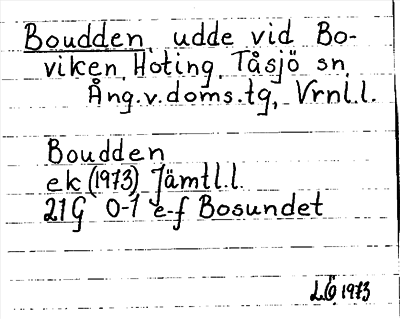 Boudden, udde vid Bo-
viken, Hoting, Tåsjö sn,
Ång.v.doms.tg, Vrnl.l.
Boudden
ek (1973) Jämtl.l.
21G 0-1 e-f Bosundet
LÖ 1973